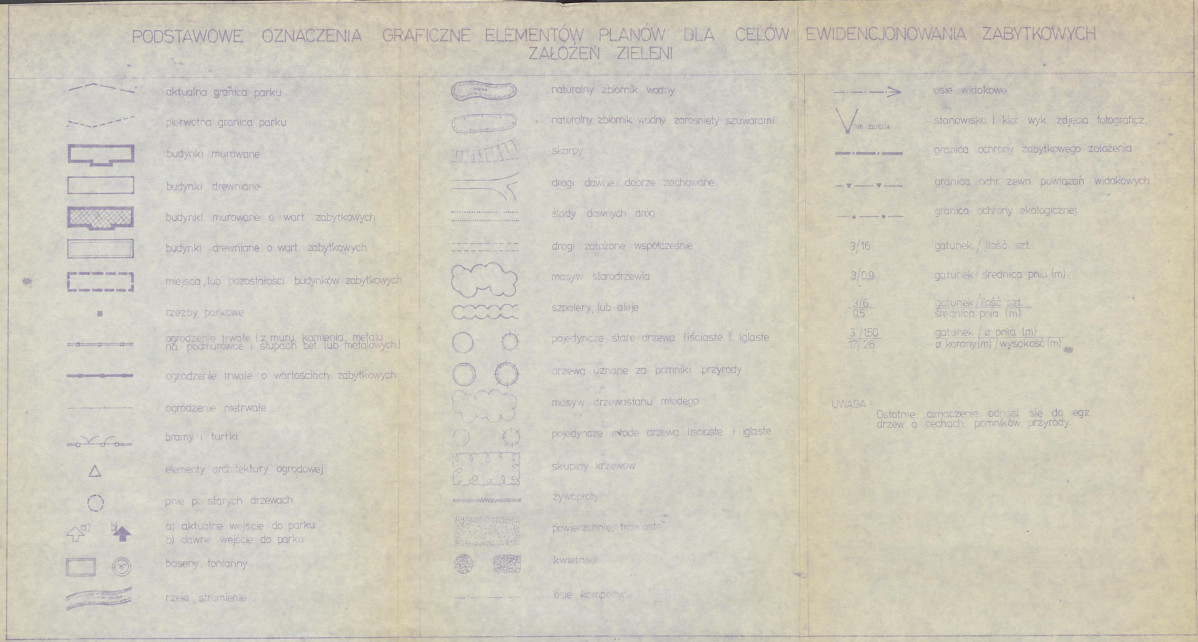 PODSTAWOWE OZNACZENIA GRAFICZNE ELEMENTÓW PLANÓW DLA CELÓW EWIDENCJONOWANIA ZABYTKOWYCH
ZAŁOŻEŃ ZIELENI
aktualna granica parku
pierwotna granica parku
budynki murowane
budynki drewniane
budynki murowane o wart. zabytkowych
budynki drewniane o wart. zabytkowych
miejsca, lub pozostałości budynków zabytkowych
rzeźby parkowe
ogrodzenie trwałe (z muru, kamienia, metalu
na podmurówce i słupach bet. lub metalowych)
ogrodzenie trwałe o wartościach zabytkowych
ogrodzenie nietrwałe
bramy i furtki
elementy architektury ogrodowej
pnie po starych drzewach
a) b)
a) aktualne wejście do parku
b) dawne wejście do parku
baseny, fontanny
rzeki, strumienie
naturalny zbiornik wodny
naturalny zbiornik wodny zarośnięty szuwarami
skarpy
drogi dawne dobrze zachowane
ślady dawnych dróg
drogi założone współcześnie
masyw starodrzewia
szpalery, lub aleje
pojedyncze stare drzewa liściaste i iglaste
drzewa uznane za pomniki przyrody
masyw drzewostanu młodego
pojedyncze młode drzewa liściaste i iglaste
skupiny krzewów
żywopłoty
powierzchnie trawiaste
kwietniki
osie kompozyc.
osie widokowe
stanowisko i kier. wyk. zdjęcia fotograficz.
granica ochrony zabytkowego założenia
granica ochr. zewn. powiązań widokowych
granica ochrony ekologicznej
3/16 gatunek / ilość szt.
3/0.9 gatunek średnica pnia (m)
3/6 gatunek / ilość szt.
0.5 średnica pnia (m)
3/150 gatunek / ø pnia (m)
17/26 ø korony (m) / wysokość (m)
UWAGA:
Ostatnie oznaczenie odnosi się do egz.
drzew o cechach pomników przyrody.